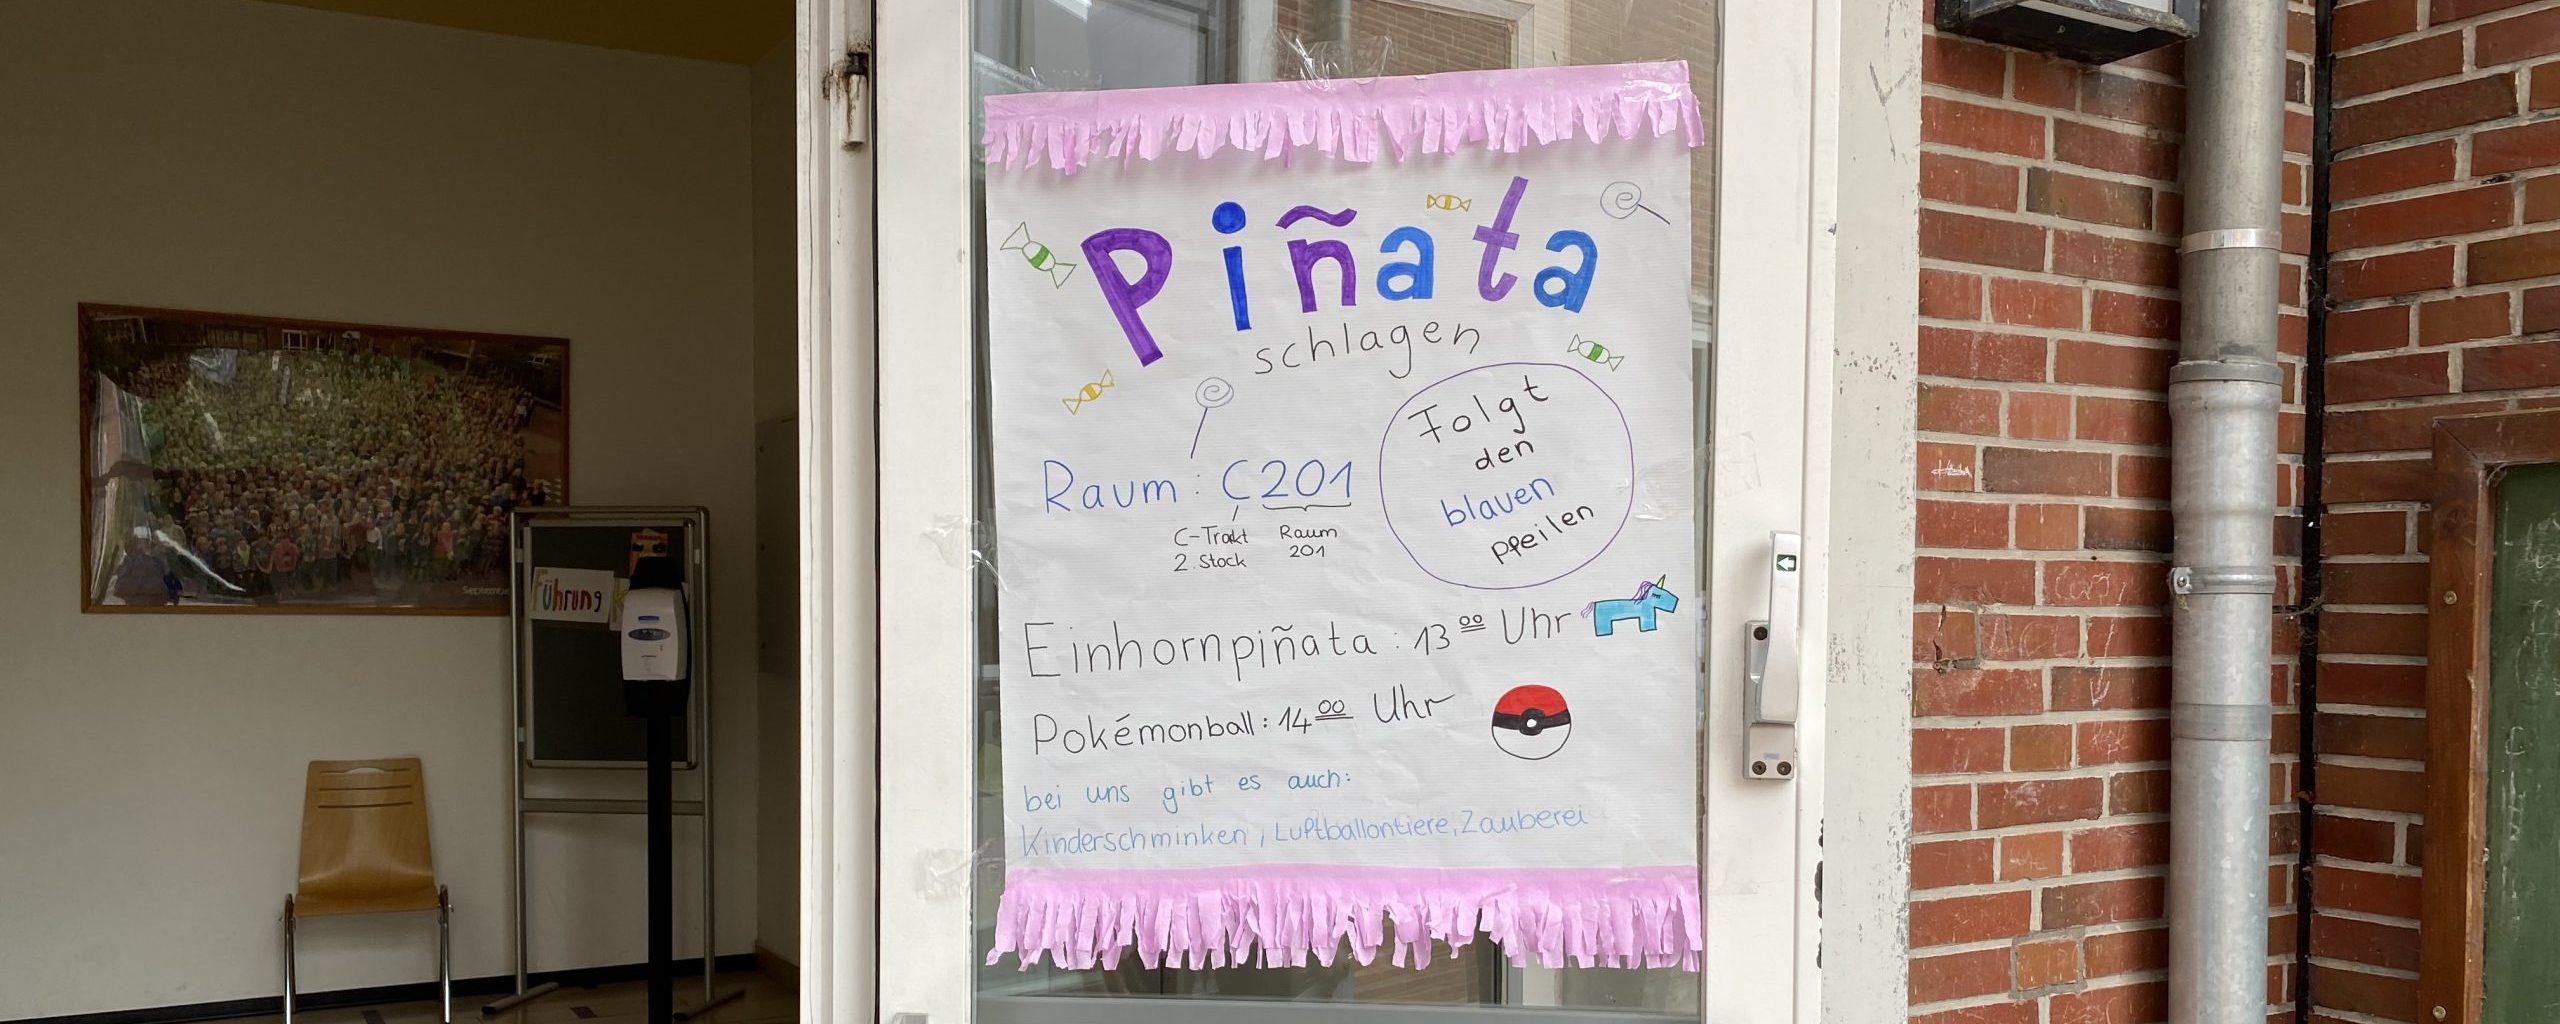 Piñata
schlagen
Folgt
den
blauen
pfeilen
Raum: C201
C-Trakt
2. Stock
Raum
201
Einhornpiñata: 13 00 Uhr
Pokémonball: 14 00 Uhr
bei uns gibt es auch:
Kinderschminken, Luftballontiere, Zauberei
Führung